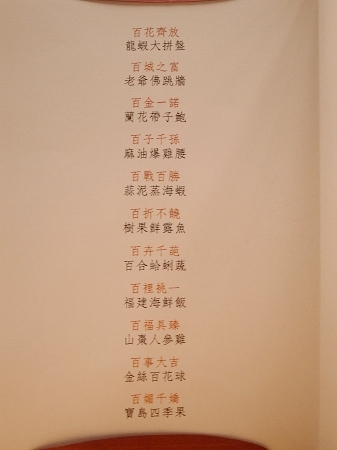 百花齊放
龍蝦大拼盤
百城之富
老爺佛跳牆
百金一諾
蘭花帶子鮑
百子千孫
麻油爆雞腰
百戰百勝
蒜泥蒸海蝦
百折不饒
樹果鮮露魚
百卉千葩
百合蛤蜊蔬
百裡挑一
福建海鮮飯
百福具臻
山棗人參雞
百事大吉
金絲百花球
百媚千嬌
寶島四季果